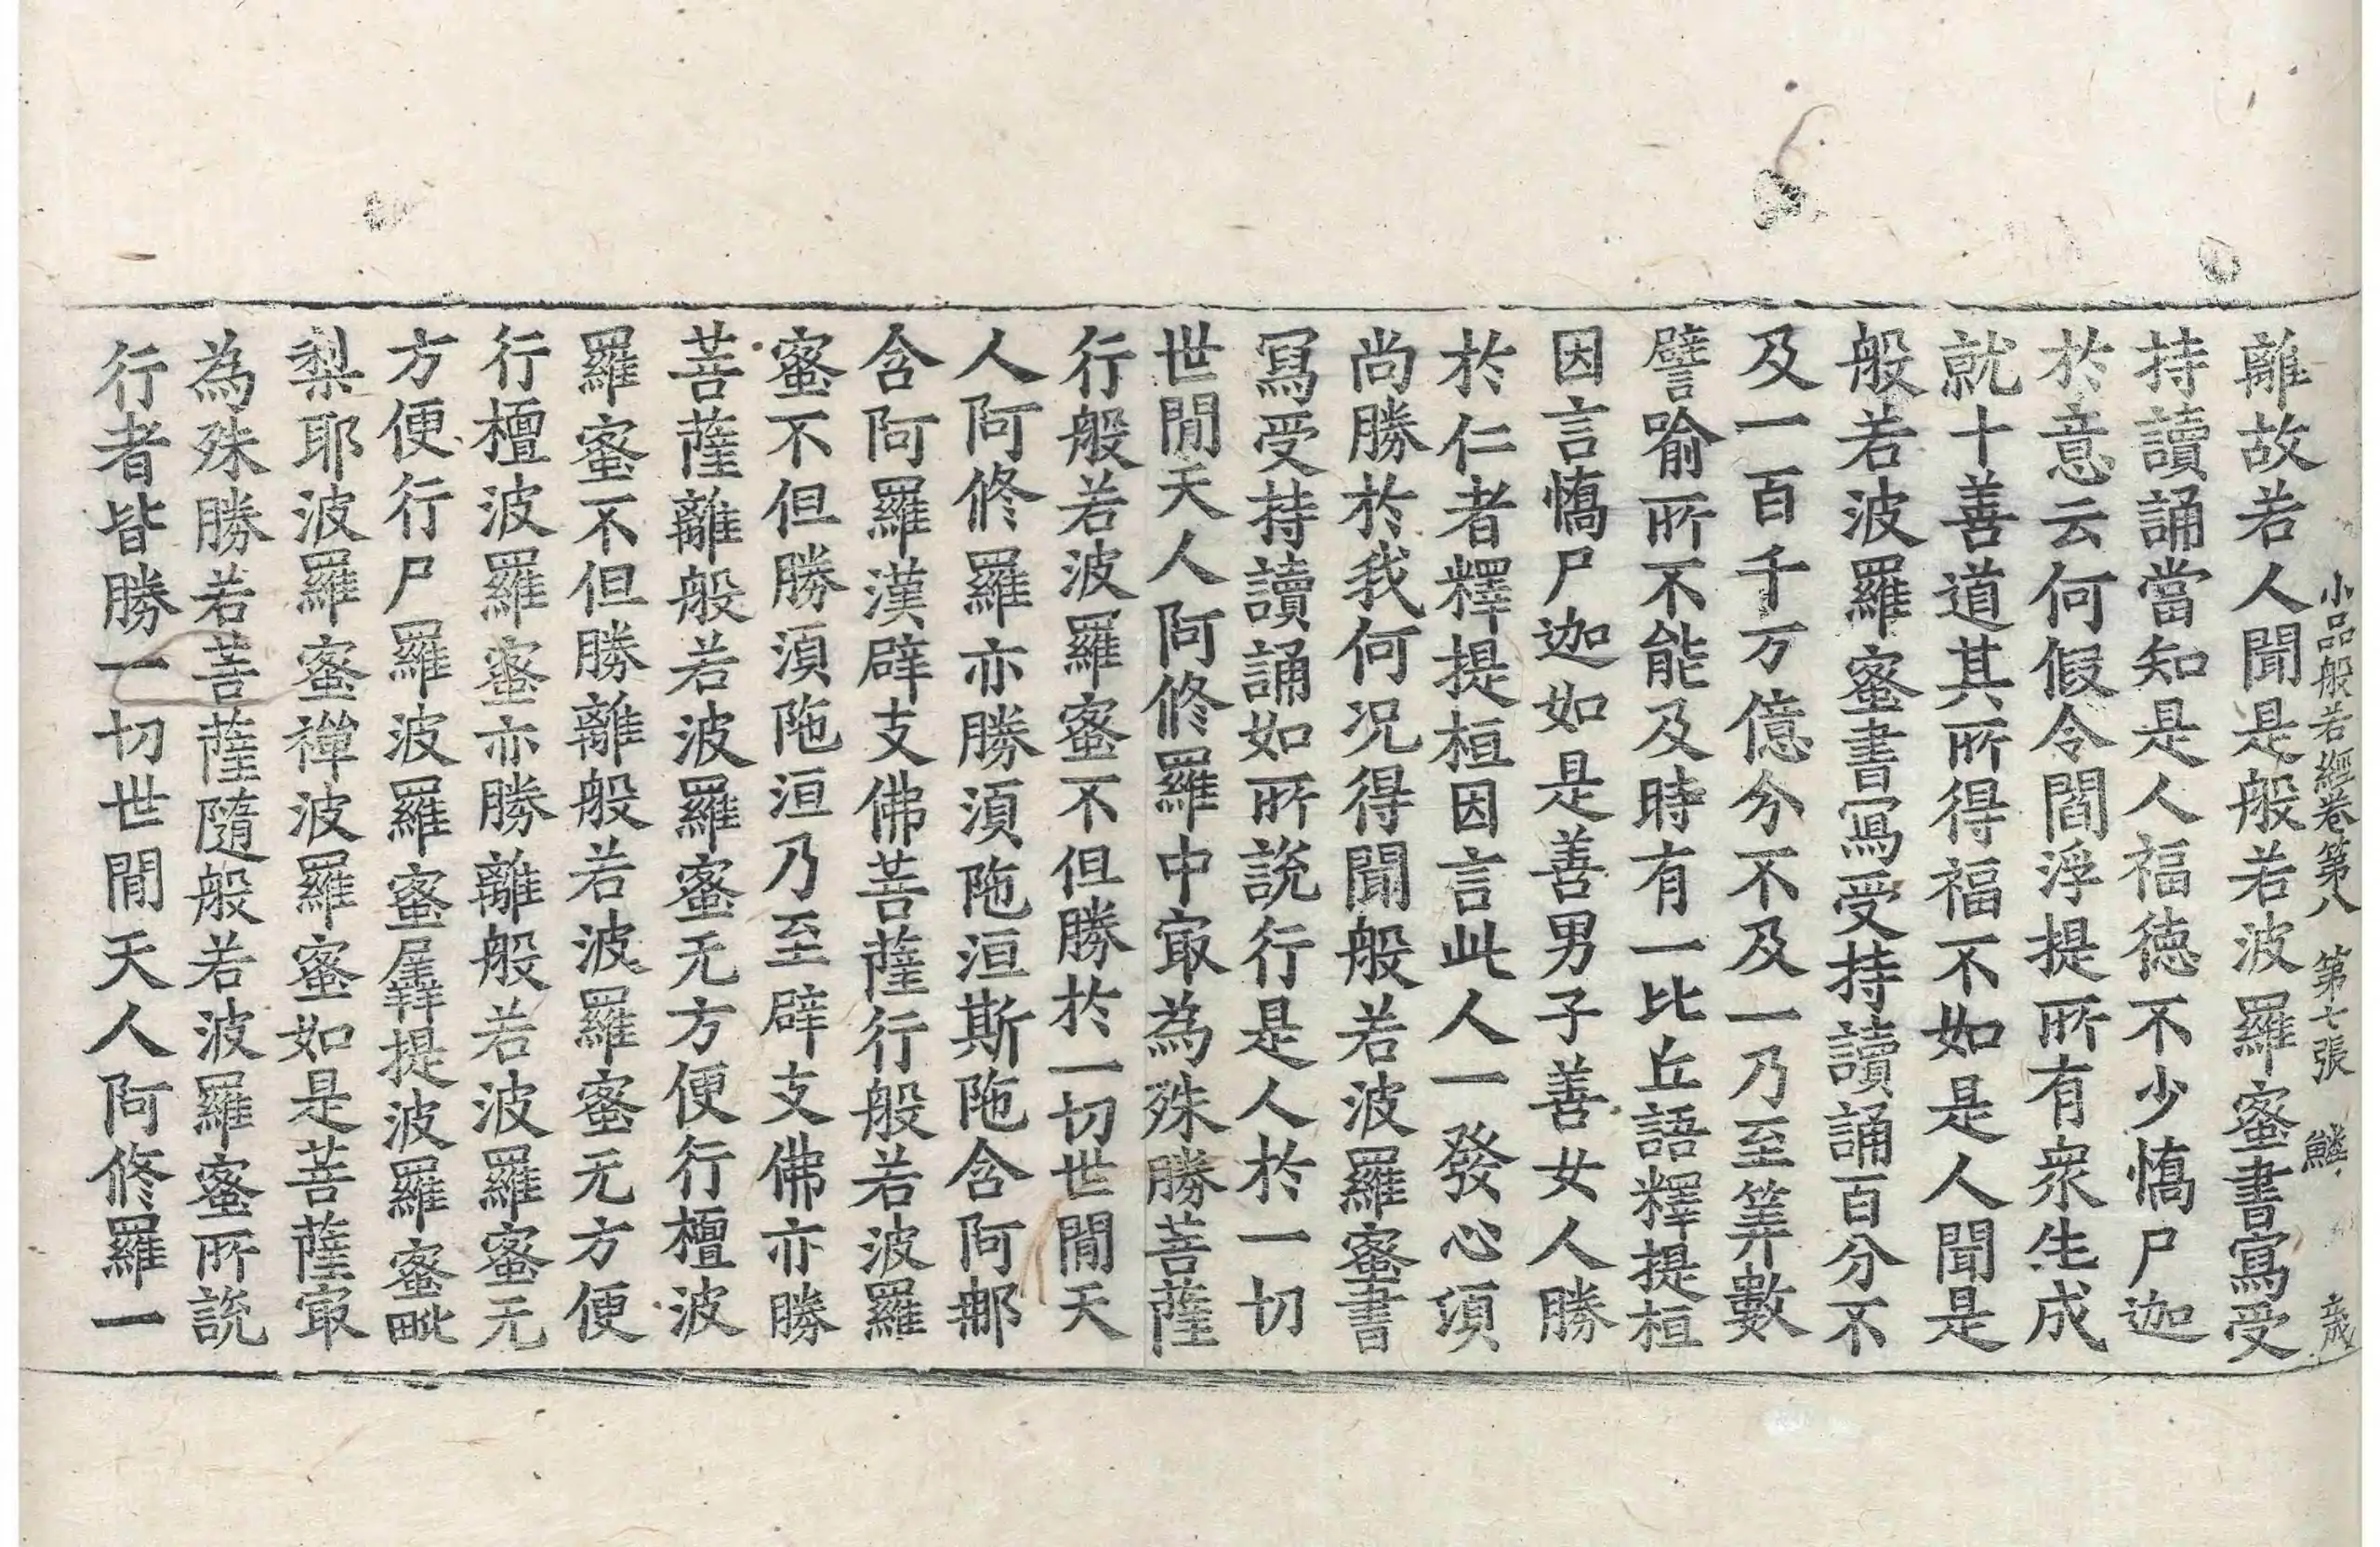 小品般若經卷第八　第七張　鱗
離故若人聞是般若波羅蜜書寫受
持讀誦當知是人福德不少憍尸迦
於意云何假令閻浮提所有衆生成
就十善道其所得福不如是人聞是
般若波羅蜜書寫受持讀誦百分不
及一百千万億分不及一乃至筭數
譬喻所不能及時有一比丘語釋提桓
因言憍尸迦如是善男子善女人勝
於仁者釋提桓因言此人一發心須
尚勝於我何况得聞般若波羅蜜書
寫受持讀誦如所說行是人於一切
世間天人阿修羅中㝡為殊勝菩薩
行般若波羅蜜不但勝於一切世間天
人阿修羅亦勝須陁洹斯陁含阿那
含阿羅漢辟支佛菩薩行般若波羅
蜜不但勝須陁洹乃至辟支佛亦勝
菩薩離般若波羅蜜无方便行檀波
羅蜜不但勝離般若波羅蜜无方便
行檀波羅蜜亦勝離般若波羅蜜无
方便行尸羅波羅蜜羼提波羅蜜毗
梨耶波羅蜜禪波羅蜜如是菩薩㝡
為殊勝若菩薩隨般若波羅蜜所說
行者皆勝一切世間天人阿修羅一